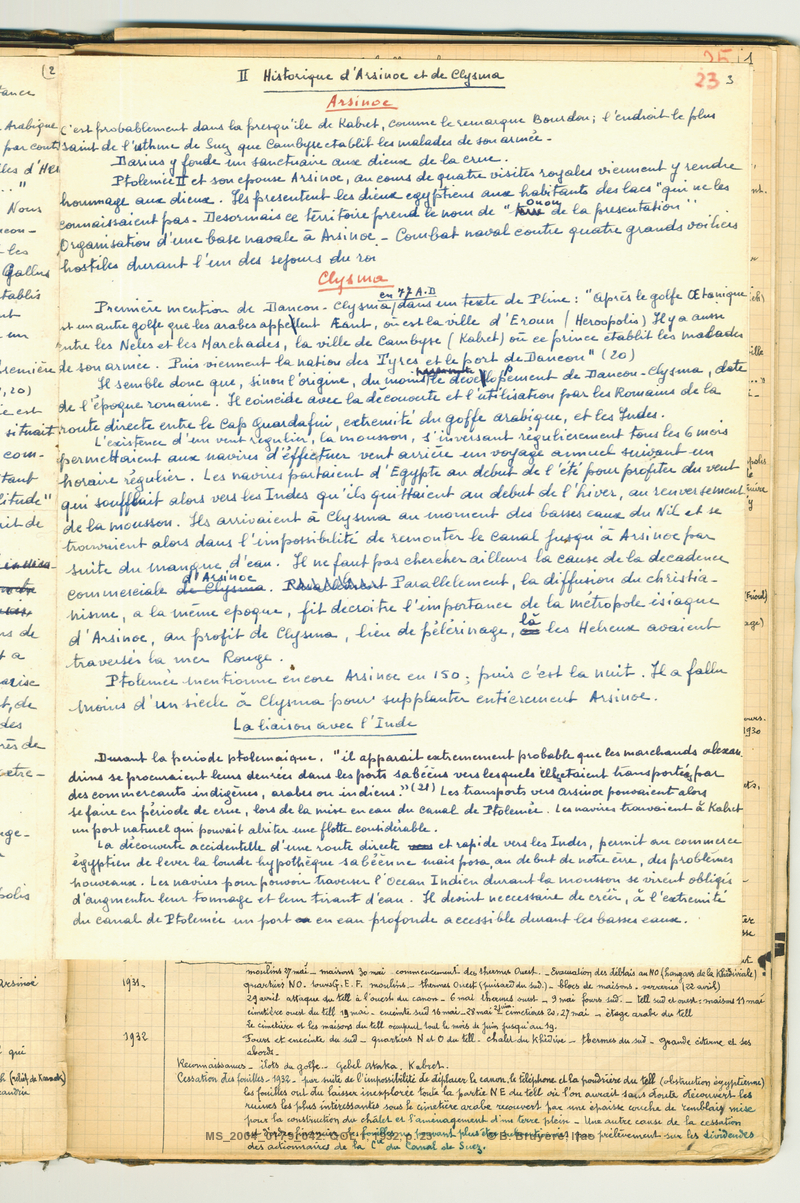 II Historique d'Arsinoe et de Clysma
23 3
Arsinoe
C'est probablement dans la presqu'ile de Kabret, comme le remarque Bourdon; l'endroit le plus
saint de l'isthme de Suez que Cambyse etablit les malades de son armée.
Darius y fonde un sanctuaire aux dieux de la crue.
Ptolemée II et son epouse Arsinoe, au cours de quatre visites royales viennent y rendre
hommage aux dieux. Ils presentent les dieux egyptiens aux habitants des lacs "qui ne les
connaissaient pas. Desormais ce territoire prend le nom de " onou de la presentation"
Organisation d'une base navale à Arsinoe - Combat naval contre quatre grands voiliers
hostiles durant l'un des sejours du roi
Clysma
en 77 A.D
Première mention de Daneon-Clysma, dans un texte de Pline: "Après le golfe Œlanique
est un autre golfe que les arabes appellent Æant, où est la ville d'Eroun (Heroopolis) Il y a aussi
entre les Neles et les Marchades, la ville de Cambyse (Kabret) où ce prince établit les malades
de son armee. Puis viennent la nation des Tyres et le port de Daneon" (20)
Il semble donc que, sinon l'origine, du moins le developement de Daneon-Clysma, date
de l'époque romaine. Il coincide avec la découverte et l'utilisation par les Romains de la
route directe entre le Cap Guardafui, extremité du golfe arabique, et les Indes.
L'existence d'un vent régulier, la mousson, s'inversant régulierement tous les 6 mois
permettaient aux navires d'éffectuer vent arrière un voyage annuel suivant un
horaire régulier. Les navires partaient d'Egypte au debut de l'été pour profiter du vent
qui soufflait alors vers les Indes qu'ils quittaient au debut de l'hiver, au renversement
de la mousson. Ils arrivaient à Clysma au moment des basses eaux du Nil et se
trouvaient alors dans l'impossibilité de remonter le canal jusqu'à Arsinoe par
suite du manque d'eau. Il ne faut pas chercher ailleurs la cause de la decadence
commerciale d'Arsinoe. Parallelement, la diffusion du christia-
nisme, a la même epoque, fit decroitre l'importance de la métropole isiaque
d'Arsinoe, au profit de Clysma, lieu de pélérinage, là les Hebreux avaient
traversés la mer Rouge.
Ptolemée mentionne encore Arsinoe en 150; puis c'est la nuit. Il a fallu
moins d'un siecle à Clysma pour supplanter entierement Arsinoe.
La liaison avec l'Inde
Durant la periode ptolemaique. "il apparait extremement probable que les marchands alexan
drins se procuraient leurs denrées dans les ports sabéens vers lesquels elles etaient transportées par
des commercants indigènes, arabes ou indiens" (21) Les transports vers Arsinoe pouvaient alors
se faire en période de crue, lors de la mise en eau du canal de Ptolemée. Les navires trouvaient à Kabret
un port naturel qui pouvait abriter une flotte considérable.
La découverte accidentelle d'une route directe et rapide vers les Indes, permit au commerce
égyptien de lever la lourde hypothèque sabéenne mais posa, au debut de notre ère, des problèmes
nouveaux. Les navires pour pouvoir traverser l'Ocean Indien durant la mousson se virent obligés
d'augmenter leur tonnage et leur tirant d'eau. Il devint necessaire de créer, à l'extremité
du canal de Ptolemée un port en eau profonde accessible durant les basses eaux.
moulins 27 mai - maisons 30 mai - commencement des thermes Ouest. - Evacuation des déblais au NO (hangars de la Khédiviale)
1931- quartiers NO. tours G.E.F. moulins - thermes Ouest (puisard du sud.) - blocs de maisons - verreries (22 avril)
29 avril attaque du tell à l'ouest du canon - 6 mai thermes ouest - 9 mai fours sud. - tell sud et ouest: maisons 11 mai
cimetière ouest du tell 19 mai - enceinte sud 16 mai - 28 mai cimetières 20.27 mai - étage arabe du tell
le cimetière et les maisons du tell occupent tout le mois de juin jusqu'au 19.
1932 Fours et enceinte du sud - quartiers N et O du tell. chalet du Khédive - thermes du sud - grande citerne et ses
abords.
Reconnaissances - ilots du golfe - Gebel Ataka. Kabret.
Cessation des fouilles - 1932 - par suite de l'impossibilité de déplacer le canon, le téléphone et la poudrière du tell (obstruction égyptienne)
les fouilles ont du laisser inexplorée toute la partie NE du tell où l'on aurait sans doute découvert les
ruines les plus intéressantes sous le cimetière arabe recouvert par une épaisse couche de remblais mise
pour la construction du châlet et l'aménagement d'un terre plein - Une autre cause de la cessation
des actionnaires de la Cie du Canal de Suez.
MS_2004_0179_042. GOL 1, 1932, p. 23 © B. Bruyère, Ifao